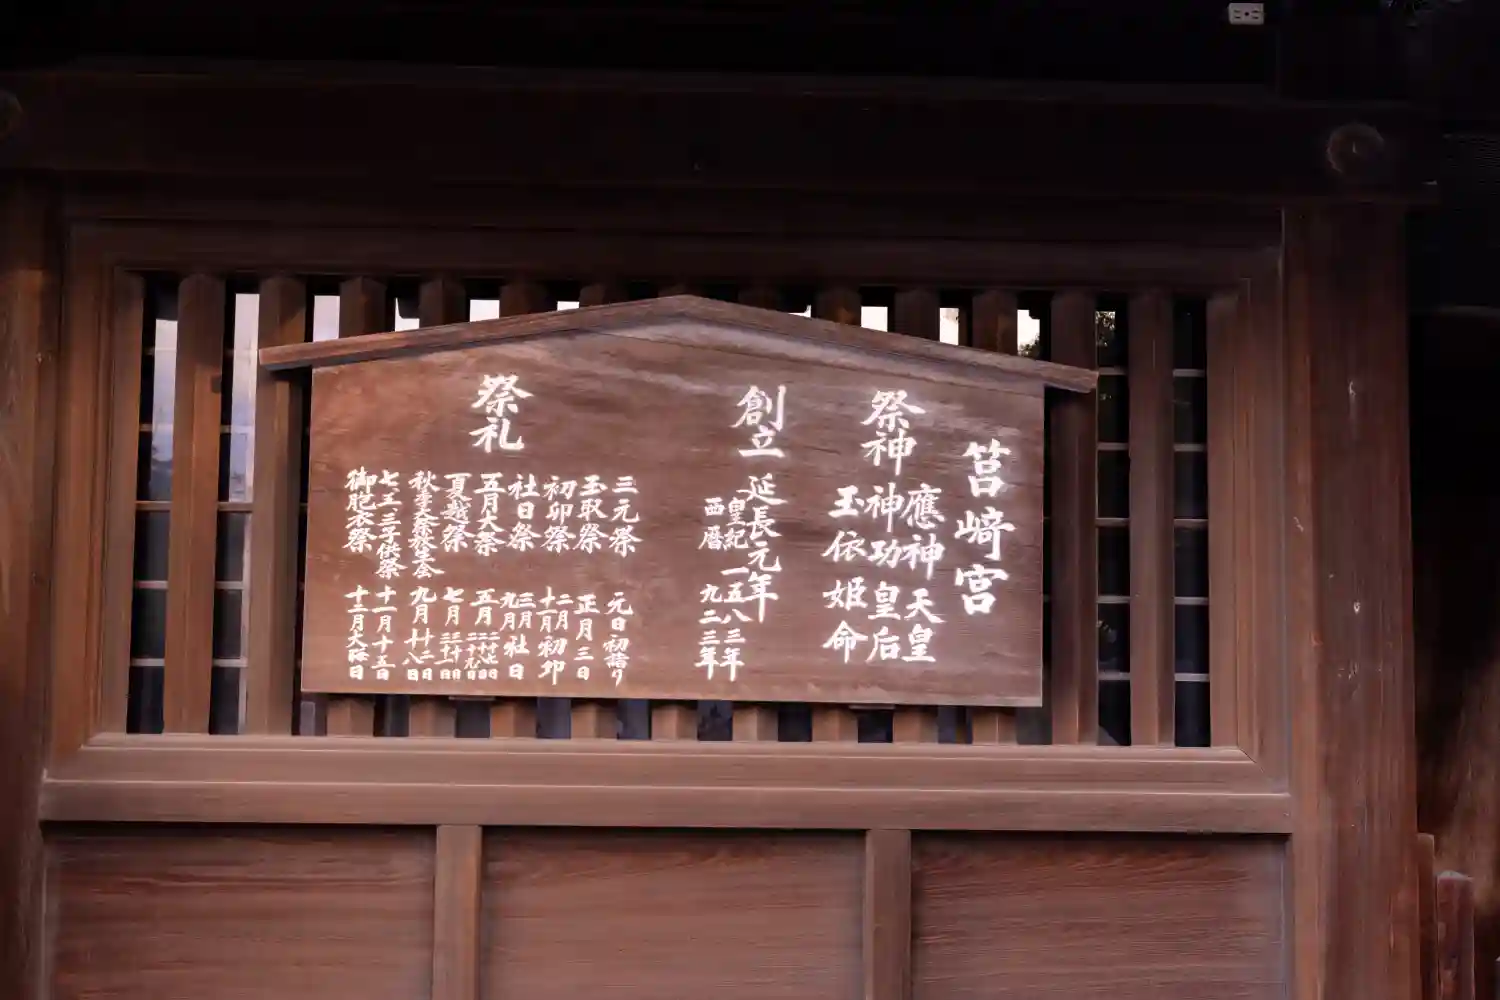 筥崎宮
祭神
應神天皇
神功皇后
玉依姫命
創立
延長元年
皇紀一五八三年
西暦九二三年
祭礼
三元祭 元日初詣り
玉取祭 正月三日
初卯祭 二月十一月初卯
社日祭 三月九月社日
五月大祭 五月二十七日二十八日
夏越祭 七月三十日三十一日
秋季大祭放生会 九月十二日十八日
七五三子供祭 十一月十五日
御胞衣祭 十二月大晦日